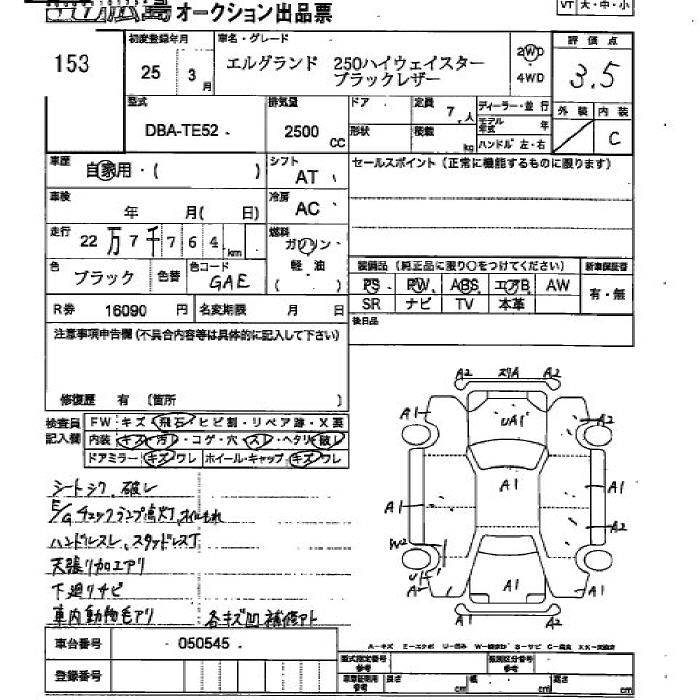 オークション出品票
VT 大・中・小
153
初度登録年月
25 3月
車名・グレード
エルグランド 250ハイウェイスター
ブラックレザー
2WD
4WD
評価点
3.5
型式
DBA-TE52
排気量
2500 CC
ドア
形状
定員 7人
積載 kg
ディーラー・並行
モデル年式 年
ハンドル 左・右
外装 内装
C
車歴
自家用・( )
シフト
AT
セールスポイント(正常に機能するものに限ります)
車検
年 月( 日)
冷房
AC
走行
22万7千764km
燃料
ガソリン・
軽・油
( )
色
ブラック
色替
色コード
GAE
装備品(純正品に限り○をつけてください)
新車保証書
PS PW ABS エアB AW
有・無
SR ナビ TV 本革
R券 16090 円
名変期限 月 日
後日品
注意事項申告欄(不具合内容等は具体的に記入して下さい)
修復歴 有 (箇所 )
検査員
記入欄
FW:キズ・飛石・ヒビ割・リペア跡・X要
内装:キズ・汚レ・コゲ・穴・スレ・ヘタリ・破レ
ドアミラー:キズ・ワレ ホイール・キャップ:キズ・ワレ
シートシワ、破レ
E/Gチェックランプ点灯、オイルもれ
ハンドルスレ、スタッドレス丁
天張リ加工アリ
下廻リサビ
車内動物毛アリ 各キズ凹補修アト
A2 スリA A2
A1 UA1 A2
A1 A1 A1
A2
W2
U1 A1
A2 A2
A1
車台番号 050545
登録番号
型式指定番号
参考
類別区分番号
参考
車庫証明用
参考
長さ cm
幅 cm
高さ cm